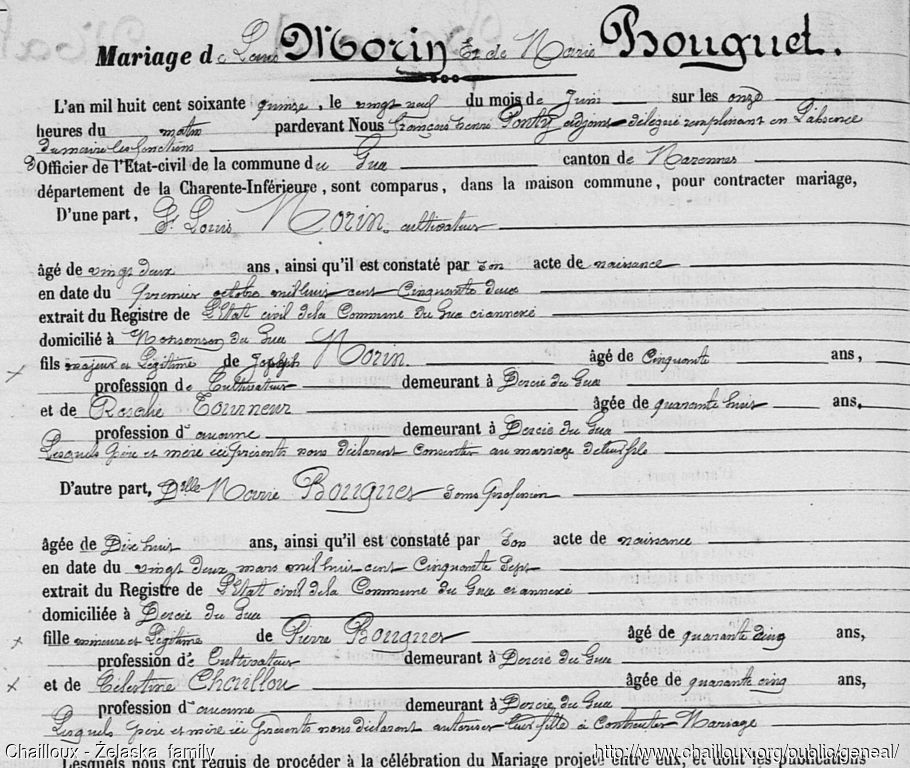 Mariage de Louis Morin Et de Marie Bouguet.
L'an mil huit cent soixante quinze, le vingt neuf du mois de Juin sur les onze
heures du matin pardevant Nous François henri Ponty adjoint délégué remplissant en L'absence
du maire les fonctions
d'Officier de l'Etat-civil de la commune du Gua canton de Marennes
département de la Charente-Inférieure, sont comparus, dans la maison commune, pour contracter mariage,
D'une part, Sr Louis Morin cultivateur
âgé de vingt deux ans, ainsi qu'il est constaté par son acte de naissance
en date du premier octobre mil huit cent Cinquante deux
extrait du Registre de L'Etat civil de la Commune du Gua ci annexé
domicilié à Monsanson du Gua
fils majeur et Légitime de Joseph Morin. âgé de Cinquante ans,
profession de Cultivateur demeurant à Dercie du Gua
et de Rosalie Tourneur âgée de quarante huit ans,
profession d'aucune demeurant à Dercie du Gua
Lesquels père et mère ici présents nous déclarent consentir au mariage de leur fils
D'autre part, Delle Marie Bougues sans profession
âgée de Dix huit ans, ainsi qu'il est constaté par son acte de naissance
en date du vingt deux mars mil huit cent Cinquante sept
extrait du Registre de L'Etat civil de la Commune du Gua ci annexé
domiciliée à Dercie du Gua
fille mineure et Légitime de Pierre Bougues âgé de quarante cinq ans,
profession de Cultivateur demeurant à Dercie du Gua
et de Célestine Chaillou âgée de quarante cinq ans,
profession d'aucune demeurant à Dercie du Gua
Lesquels père et mère ici présents nous déclarent autoriser leur fille à Contracter Mariage
Lesquels nous ont requis de procéder à la célébration du Mariage projeté entre eux, et dont les publications
Chailloux - Żelaska family http://www.chailloux.org/public/geneal/